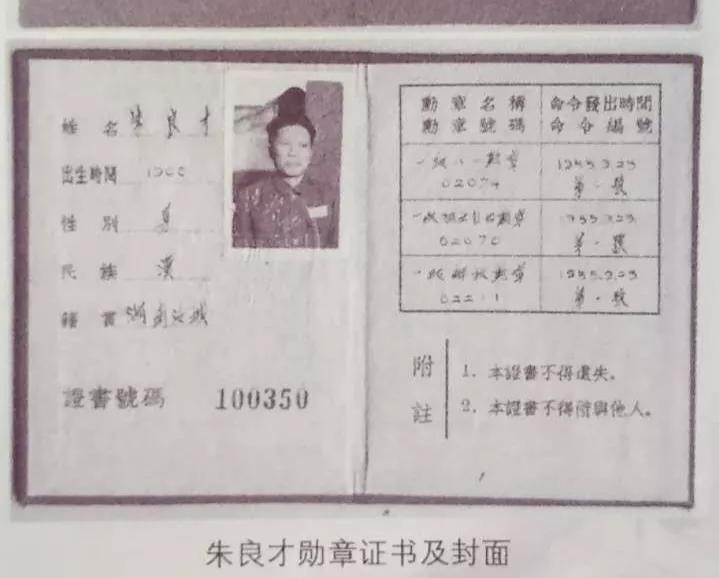 姓名 朱良才
出生時間 1900
性別 男
民族 漢
籍貫 湖南汝城
證書號碼 100350
勳章名稱 命令發出時間
勳章號碼 命令編號
一級八一勳章 1955.9.23
02074 第一號
一級獨立自由勳章 1955.9.23
02070 第一號
一級解放勳章 1955.9.23
02211 第一號
附註
1. 本證書不得遺失。
2. 本證書不得借與他人。
朱良才勋章证书及封面